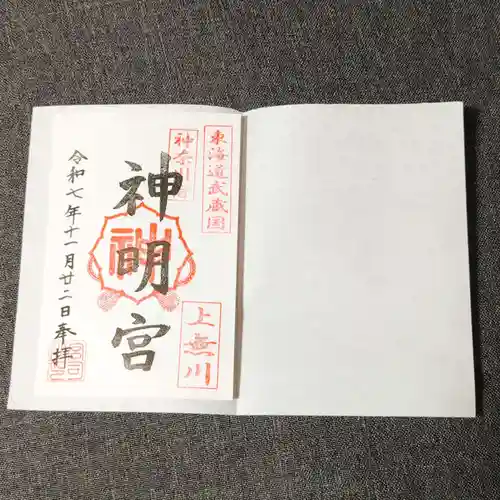 東海道武蔵国
神奈川宿
上無川
神明宮
神
令和七年十一月廿二日奉拝